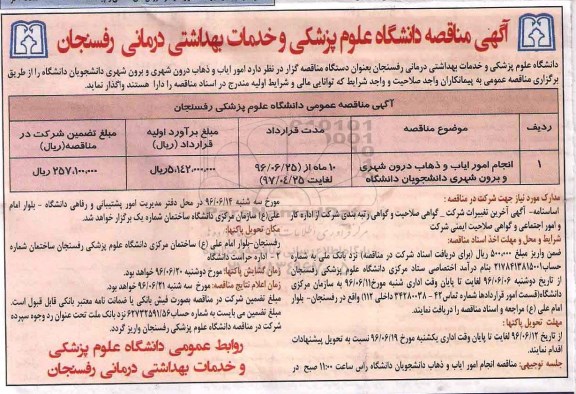 آگهی مناقصه دانشگاه علوم پزشکی و خدمات بهداشتی درمانی رفسنجان
دانشگاه علوم پزشکی و خدمات بهداشتی درمانی رفسنجان بعنوان دستگاه مناقصه گزار در نظر دارد امور ایاب و ذهاب درون شهری و برون شهری دانشجویان دانشگاه را از طریق
برگزاری مناقصه عمومی به پیمانکاران واجد صلاحیت و واجد شرایط که توانایی مالی و شرایط اولیه مندرج در اسناد مناقصه را دارا هستند واگذار نماید.
آگهی مناقصه عمومی دانشگاه علوم پزشکی رفسنجان
ردیف
موضوع مناقصه
مدت قرارداد
مبلغ برآورد اولیه
قرارداد (ریال)
مبلغ تضمین شرکت در
مناقصه(ریال)
۱
انجام امور ایاب و ذهاب درون شهری
و برون شهری دانشجویان دانشگاه
۱۰ ماه از (۹۶/۰۶/۲۵
لغایت ۹۷/۰۴/۲۵)
۵،۱۴۲،۰۰۰،۰۰۰ریال
۲۵۷،۱۰۰،۰۰۰ریال
مدارک مورد نیاز جهت شرکت در مناقصه :
اساسنامه - آگهی آخرین تغییرات شرکت _ گواهی صلاحیت و گواهی رتبه بندی شرکت از اداره کار
و امور اجتماعی و گواهی صلاحیت ایمنی شرکت
شرایط و محل و مهلت اخذ اسناد مناقصه:
ضمن واریز مبلغ ۵۰۰،۰۰۰ ریال (برای دریافت اسناد شرکت در مناقصه) نزد بانک ملی به شماره
حساب۲۱۷۸۴۱۳۸۱۵۰۰۱ بنام درآمد اختصاصی ستاد مرکزی دانشگاه علوم پزشکی رفسنجان
از تاریخ دوشنبه ۹۶/۰۶/۰۶ لغایت تا پایان وقت اداری شنبه مورخ۹۶/۰۶/۱۱ به سازمان مرکزی
دانشگاه(قسمت امور قراردادها شماره تماس۴۲ - ۳۴۲۸۰۰۳۸ داخلی ۱۱۲) واقع در رفسنجان- بلوار
امام علی (ع) مراجعه و اسناد مناقصه را دریافت نمایند.
مهلت تحویل پاکتها:
از تاریخ ۹۶/۰۶/۱۲ لغایت تا پایان وقت اداری یکشنبه مورخ ۹۶/۰۶/۱۹ نسبت به تحویل پیشنهادات
اقدام نمایند.
جلسه توجیهی: مناقصه انجام امور ایاب و ذهاب دانشجویان دانشگاه راس ساعت ۱۱:۰۰ صبح در
مورخ سه شنبه ۹۶/۰۶/۱۴ در محل دفتر مدیریت امور پشتیبانی و رفاهی دانشگاه - بلوار امام
علی(ع) سازمان مرکزی دانشگاه ساختمان شماره یک برگزار خواهد شد.
مکان تحویل پاکتها:
رفسنجان-بلوار امام علی (ع) ساختمان مرکزی دانشگاه علوم پزشکی رفسنجان ساختمان شماره
۲ - اداره حراست دانشگاه
زمان گشایش پاکتها: مورخ دوشنبه ۹۶/۰۶/۲۰ خواهد بود.
زمان اعلام نتایج مناقصه: مورخ سه شنبه ۹۶/۰۶/۲۱ خواهد بود.
مبلغ تضمین شرکت در مناقصه بصورت فیش بانکی یا ضمانت نامه معتبر بانکی قابل قبول است.
مبلغ تضمین می بایست به شماره حساب۶۲۷۳۲۵۹۱/۵۶ نزد بانک ملت تحت عنوان رد وجوه سپرده
شرکت در مناقصه دانشگاه علوم پزشکی رفسنجان واریز گردد.
روابط عمومی دانشگاه علوم پزشکی
و خدمات بهداشتی درمانی رفسنجان